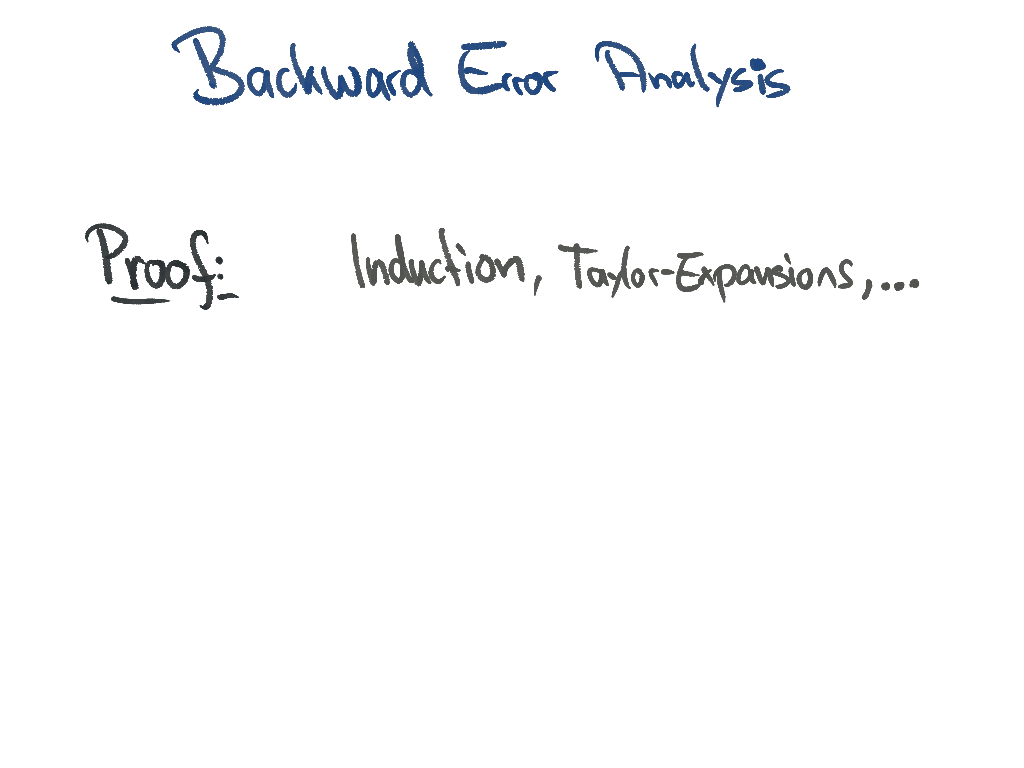 Backward Error Analysis
Proof: Induction, Taylor-Expansions, ...